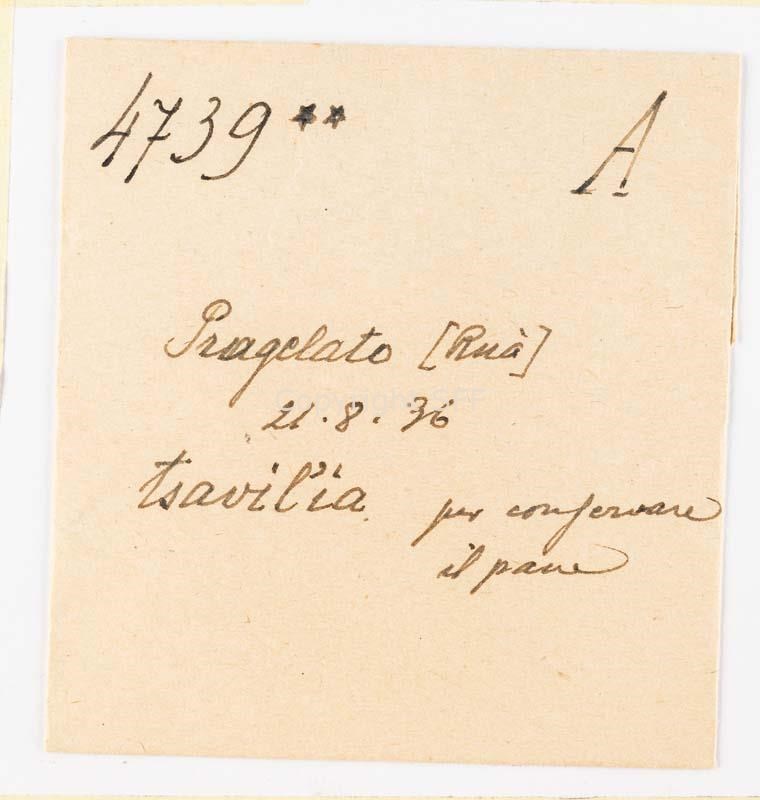 4739 ** A
Pragelato [Ruà]
21.8.36
tsavil'ia per conservare
il pane